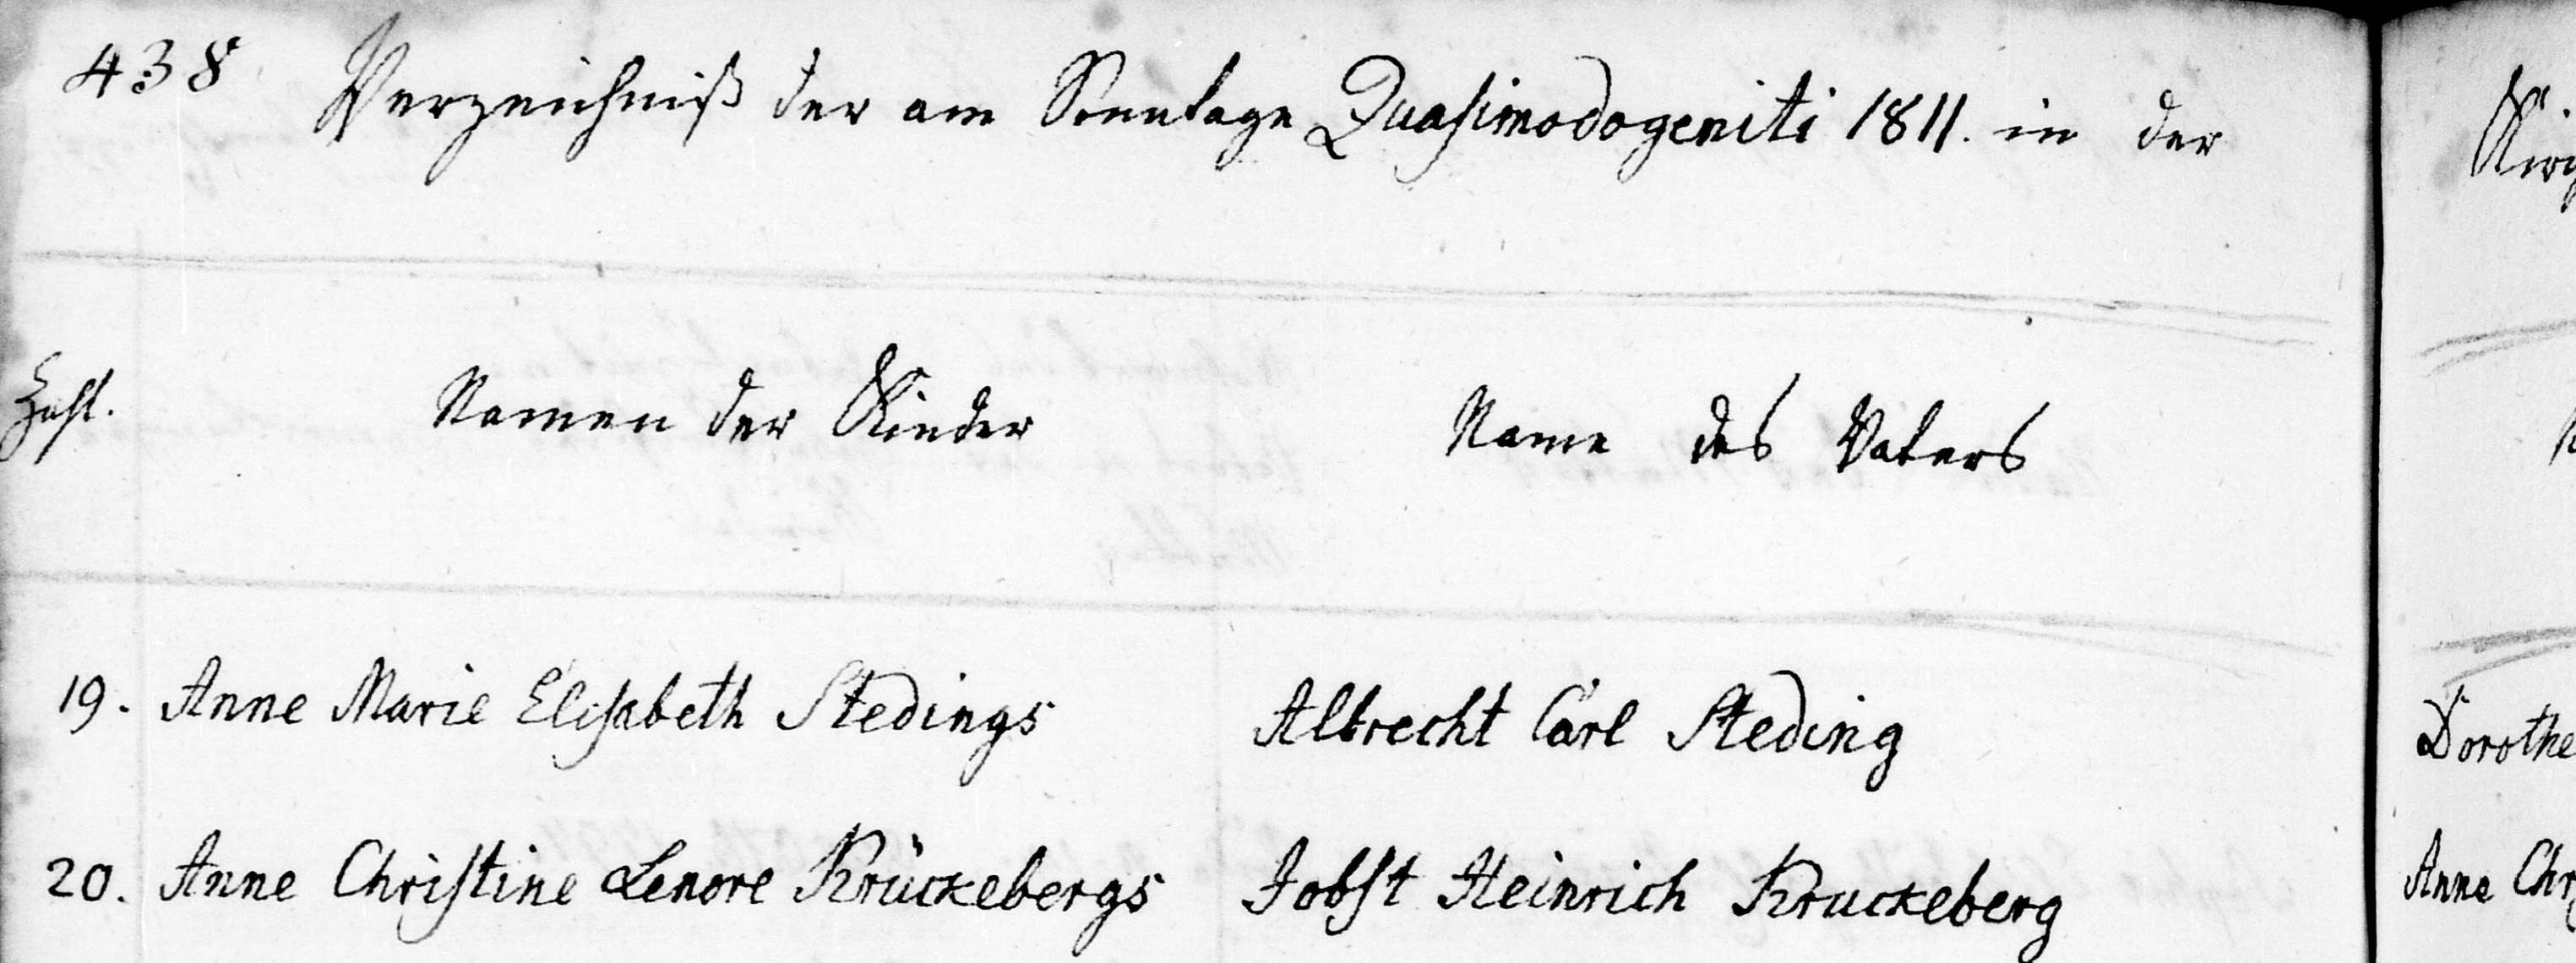 438 Verzeichniß der am Sonntage Quasimodogeniti 1811. in der
Zahl. Namen der Kinder Name des Vaters
19. Anne Marie Elisabeth Stedings Albrecht Carl Steding Dorothe
20. Anne Christine Lenore Krückebergs Jobst Heinrich Kruckeberg Anne Chr